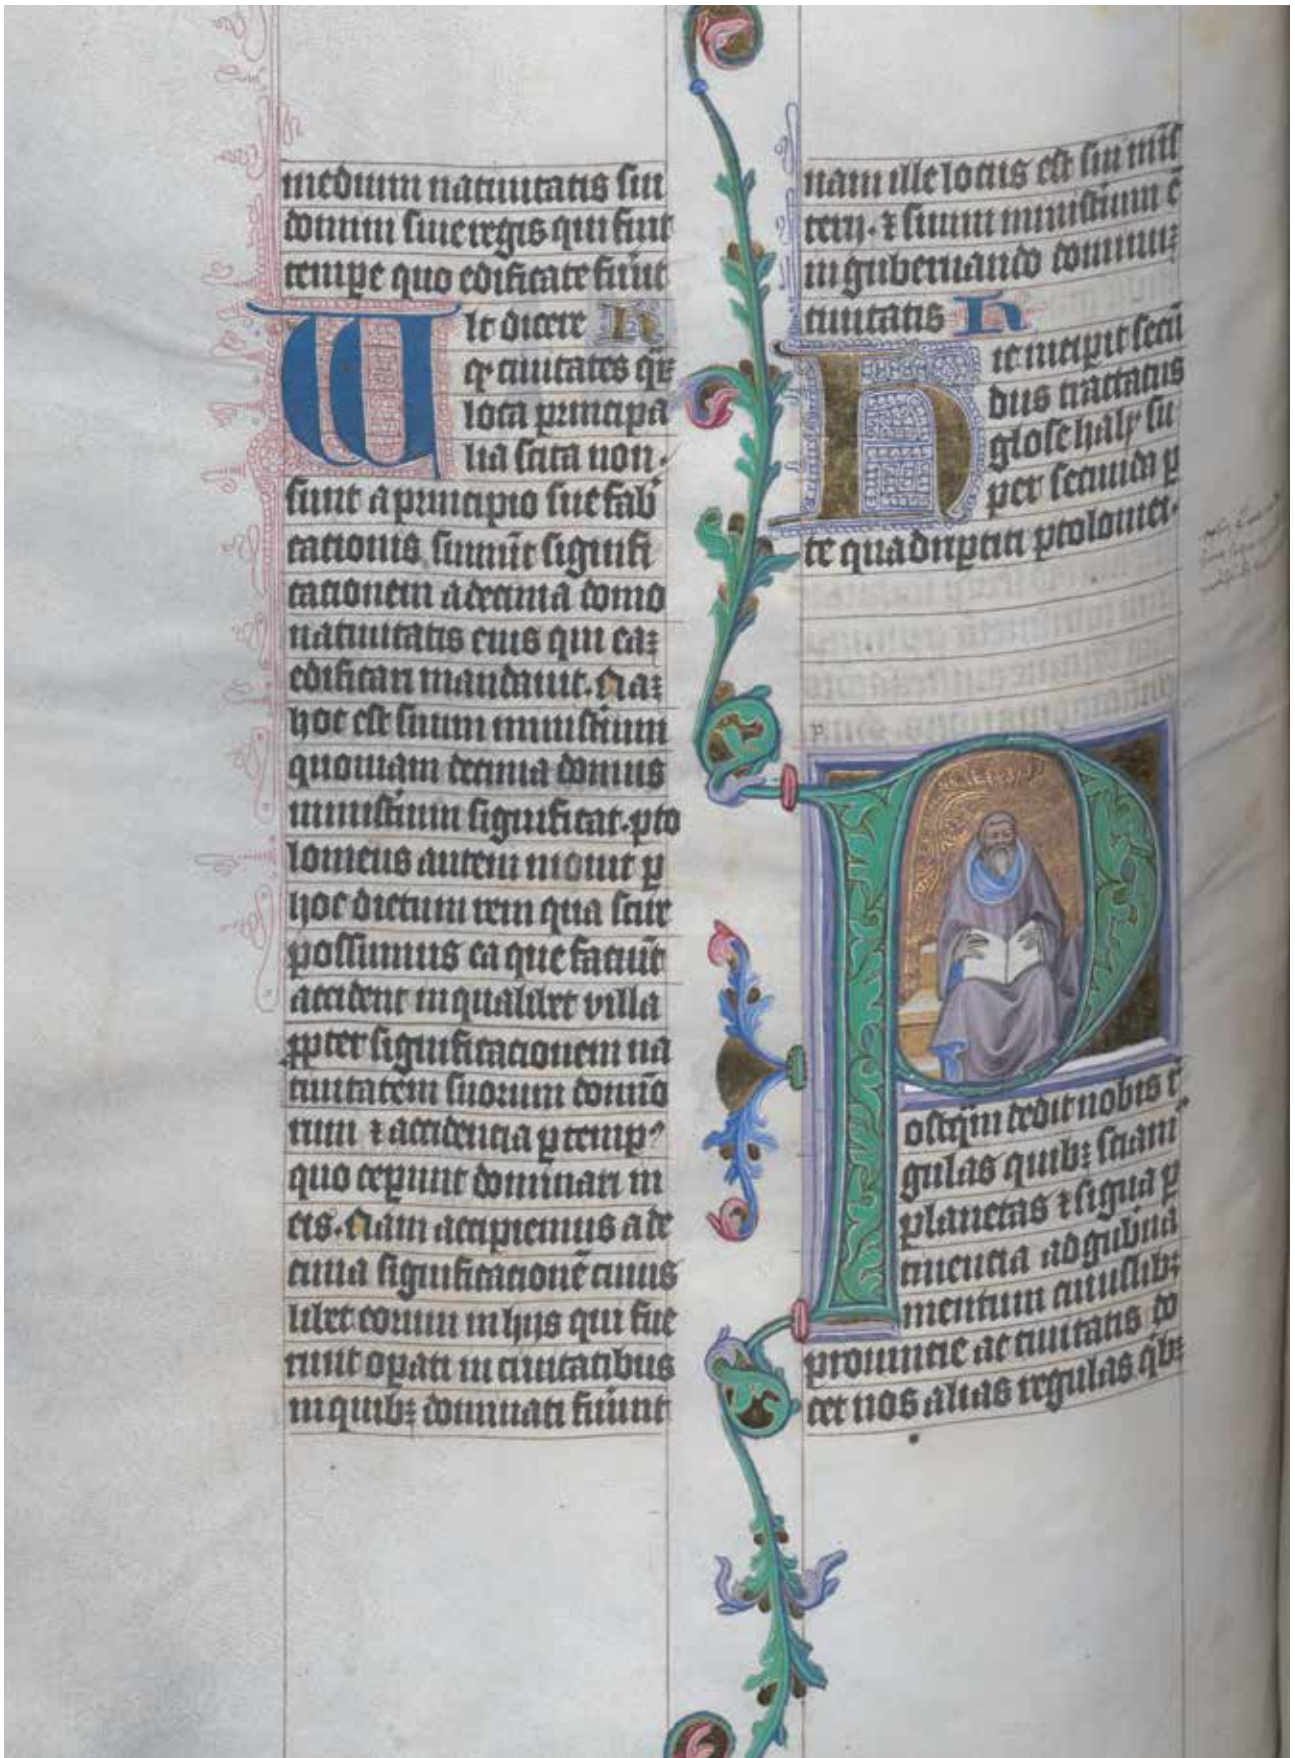 medium natiuitatis sui
domini siue regis qui fuit
tempe quo edificate fuūt
Ult dicere R
qꝰ ciuitates qͣꝝ
loca principa
lia scita non
sunt a principio sue fab̄
cationis sumūt signifi
cationem a decima domo
natiuitatis eius qui eaꝫ
edificari mandauit. Naꝫ
hoc est suum ministīum
quoniam decima domus
ministīum significat. pto
lomeus autem monit ꝑ
hoc dictum rem qua scir̄e
possumus ea que faciūt
accident in qualibet villa
ꝓpter significationem na
tiuitatem suorum domino
rum ⁊ accidencia ꝑ temp⁹
quo ceperunt dominari in
eis. Nam accipiemus a de
cima significationē cuius
libet eorum in hijs qui fue
runt opati in ciuitatibus
in quibꝫ dominati fuūnt
nam ille locus est sui mis
terij. ⁊ suum ministīum ē
in gubernando dominiuꝫ
ciuitatis R
Hic incipit secū
dus tractatus
glose haly su
per secunda ꝑ
te quadripartiti ptolomei.
Postqͣm dedit nobis r̄e
gulas quibꝫ sciam⁹
planetas ⁊ signa ꝑ
tinencia ad gub̄na
mentum cuiuslibꝫ
prouincie ac ciuitatis do
cet nos alias regulas qͥbꝫ